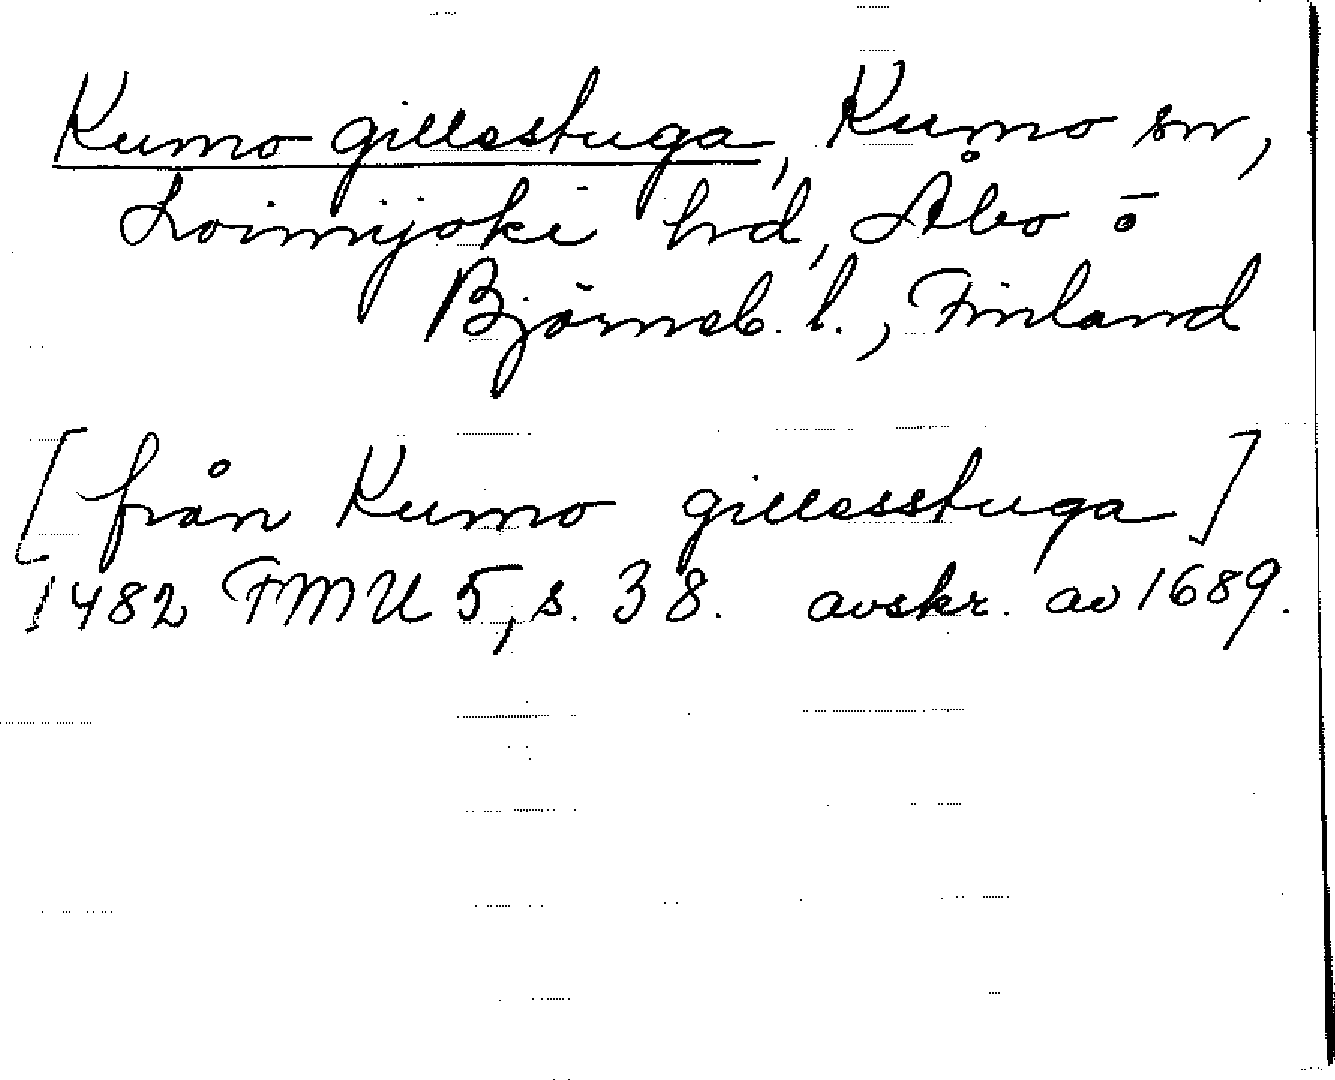 Kumo gillestuga, Kumo sn,
Loimijoki hd, Åbo o
Björneb. l., Finland
[från Kumo gillesstuga]
1482 FMU 5, s. 38. avskr. av 1689.